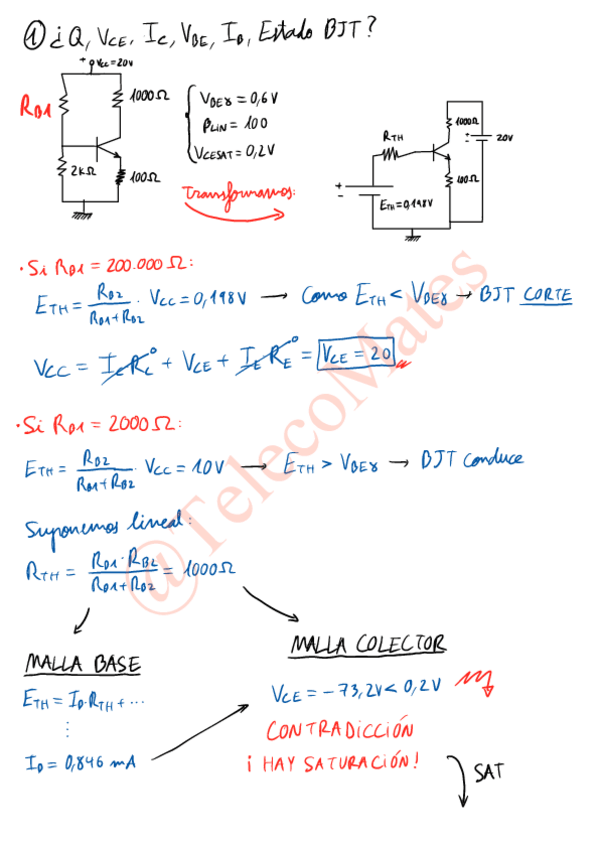 ① ¿Q, VCE, IC, VBE, IB, Estado BJT?
+ VCC=20V
RB1
1000Ω
2kΩ
100Ω
VBEγ = 0,6V
βLIN = 100
VCESAT = 0,2V
Transformamos:
RTH
1000Ω
+
-
20V
100Ω
+
-
ETH=0,198V
· Si RB1 = 200.000 Ω:
ETH = RB2 / RB1+RB2 · VCC = 0,198V → Como ETH < VBEγ → BJT CORTE
VCC = ICRC⁰ + VCE + IERE⁰ = VCE = 20
· Si RB1 = 2000 Ω:
ETH = RB2 / RB1+RB2 · VCC = 10V → ETH > VBEγ → BJT conduce
Suponemos lineal:
RTH = RB1·RB2 / RB1+RB2 = 1000Ω
MALLA BASE
ETH = IB·RTH + ...
⋮
IB = 0,846 mA
MALLA COLECTOR
VCE = -73,2V < 0,2V
CONTRADICCIÓN
¡ HAY SATURACIÓN !
SAT
@TelecoMates